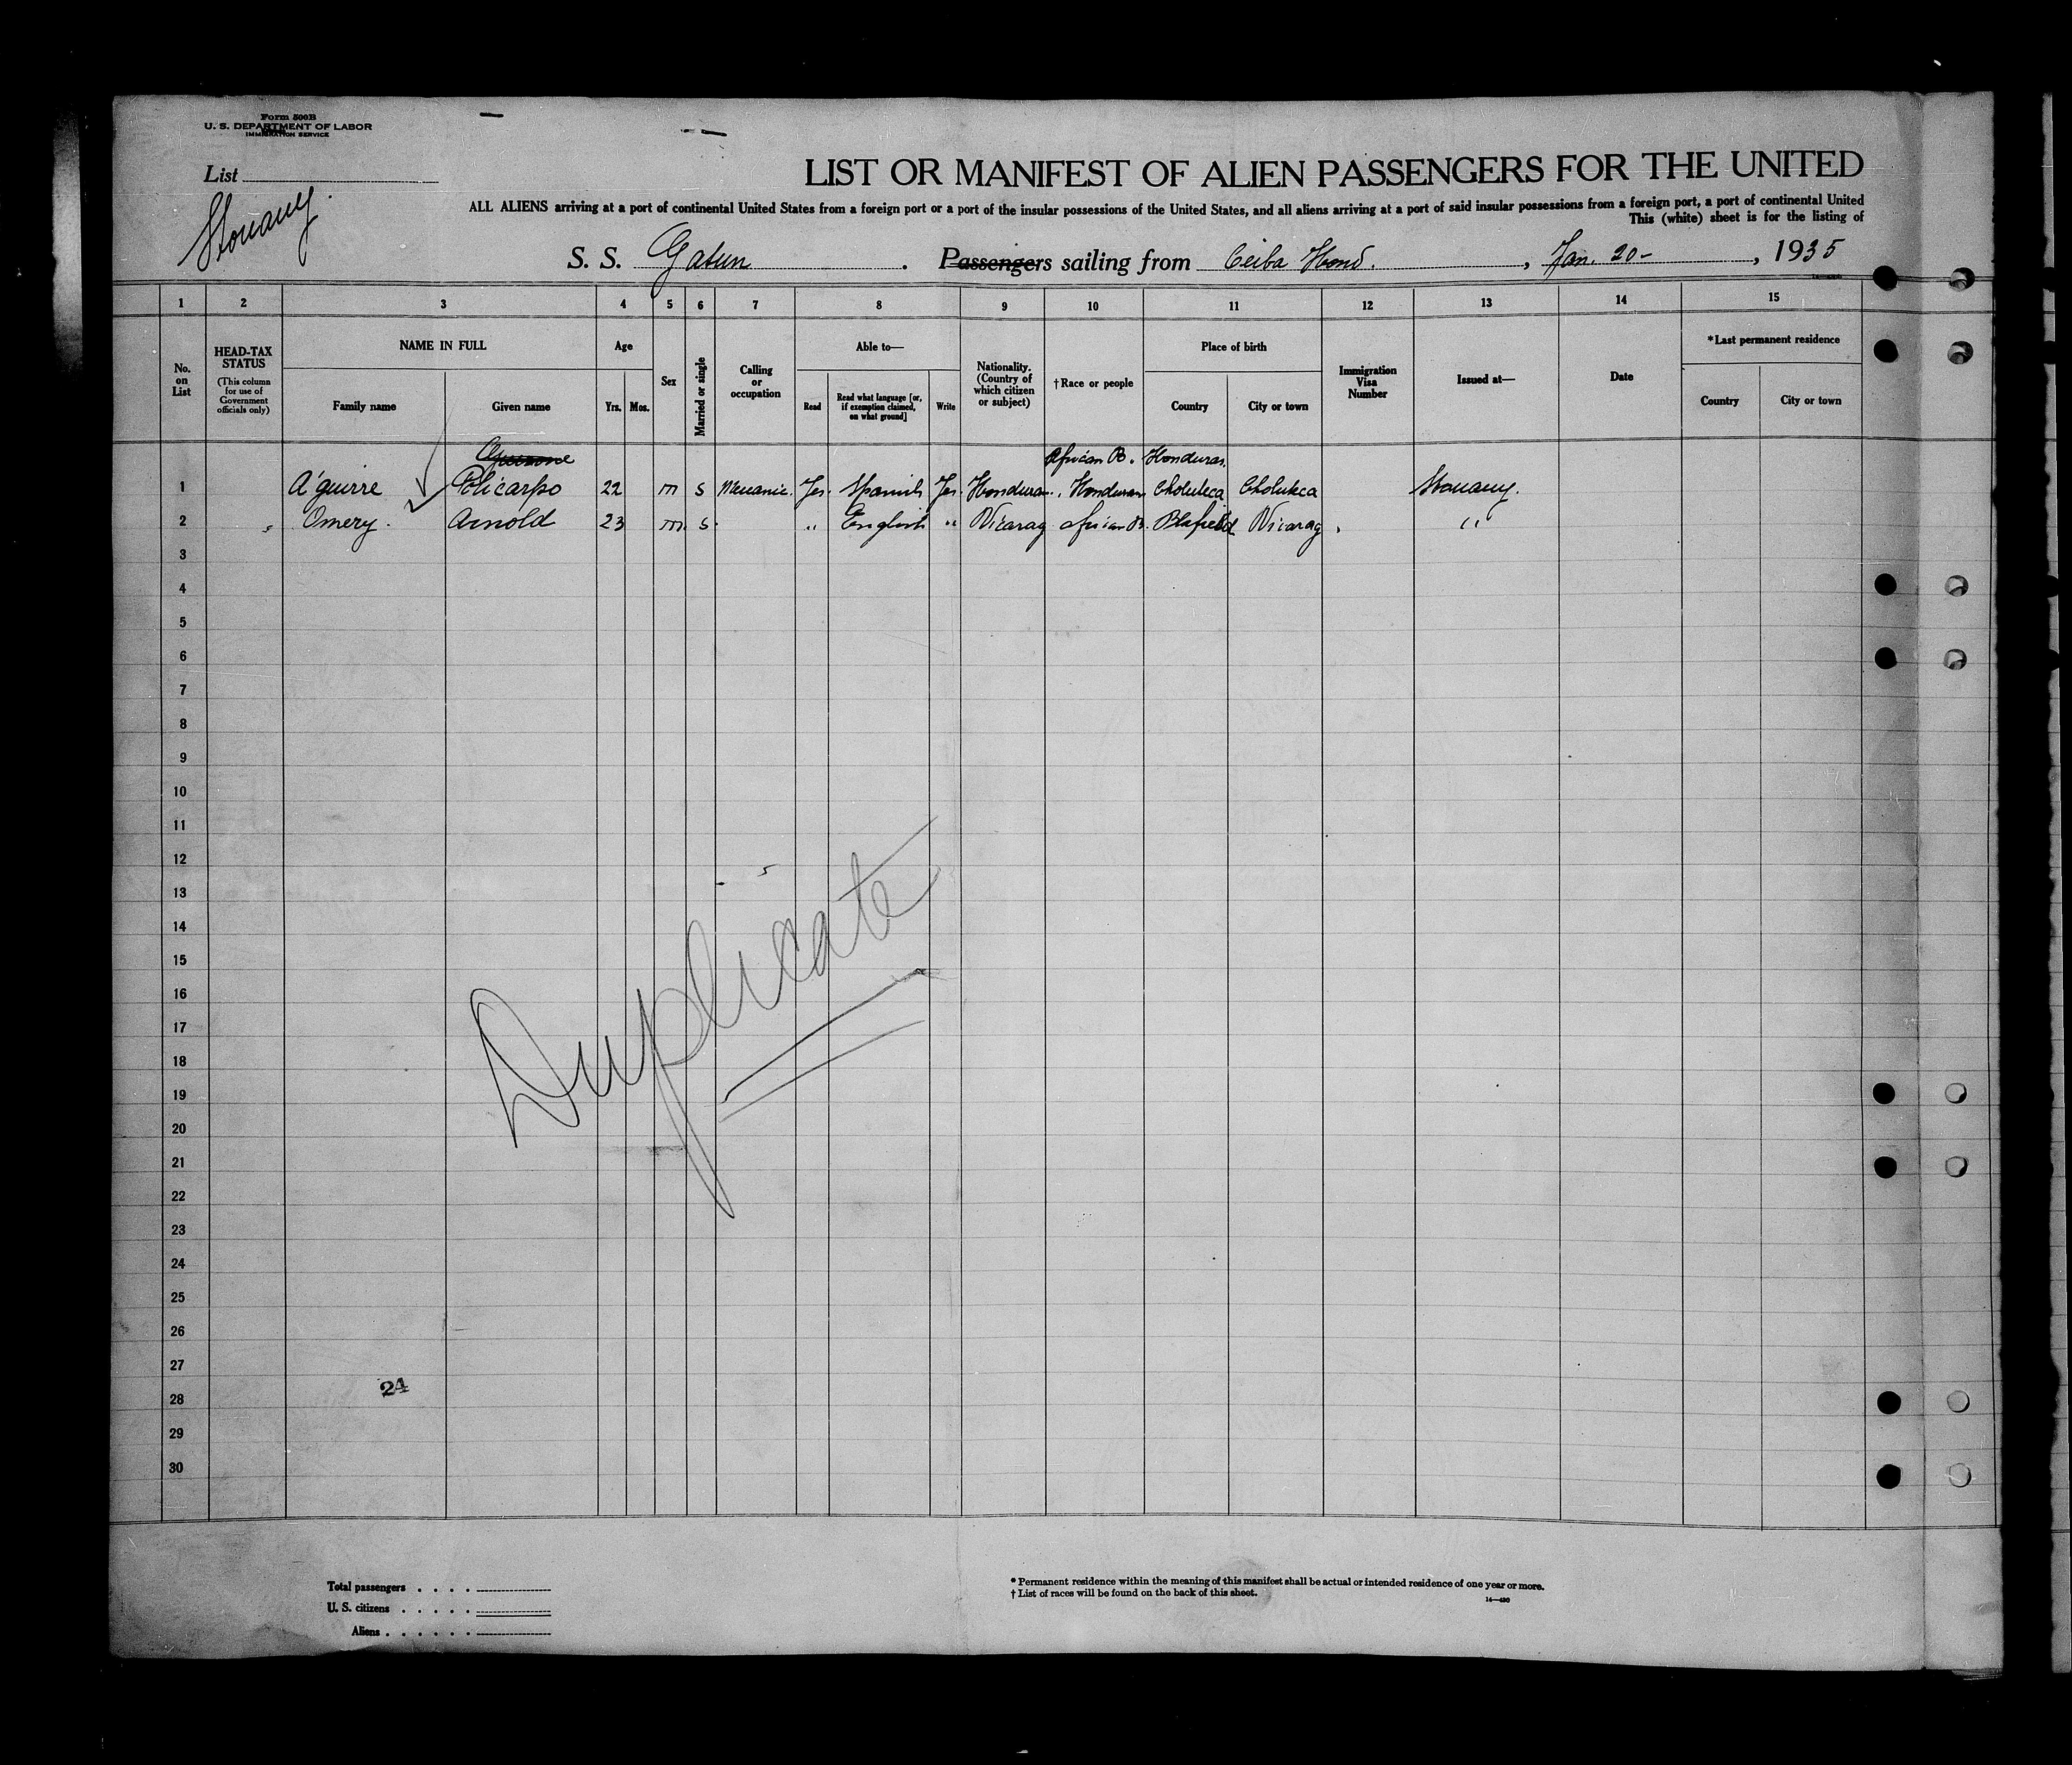 Form 500B
U. S. DEPARTMENT OF LABOR
IMMIGRATION SERVICE
List
Stouawy.
LIST OR MANIFEST OF ALIEN PASSENGERS FOR THE UNITED
ALL ALIENS arriving at a port of continental United States from a foreign port or a port of the insular possessions of the United States, and all aliens arriving at a port of said insular possessions from a foreign port, a port of continental United
This (white) sheet is for the listing of
S. S. Gatun . Passengers sailing from Ceiba Hond. , Jan. 20- , 1935
1 2 3 4 5 6 7 8 9 10 11 12 13 14 15
No. on List
HEAD-TAX STATUS
(This column for use of Government officials only)
NAME IN FULL
Family name
Given name
Age
Yrs.
Mos.
Sex
Married or single
Calling or occupation
Able to—
Read
Read what language [or, if exemption claimed, on what ground]
Write
Nationality. (Country of which citizen or subject)
†Race or people
Place of birth
Country
City or town
Immigration Visa Number
Issued at—
Date
*Last permanent residence
Country
City or town
African B. Honduras.
1 A'guirre Policarpo 22 m s Mecanic. Yes. Spanish Yes. Honduran. Honduran Choluteca Choluteca Stouawy.
2 Omery. Arnold 23 m. s. " English " Nicarag African B. Blufield Nicarag "
3
4
5
6
7
8
9
10
11
12
13
14
15
16
17
18
19
20
21
22
23
24
25
26
27
28
29
30
Duplicate
24
Total passengers . . . .
U. S. citizens . . . . .
Aliens . . . . . .
* Permanent residence within the meaning of this manifest shall be actual or intended residence of one year or more.
† List of races will be found on the back of this sheet.
14—430